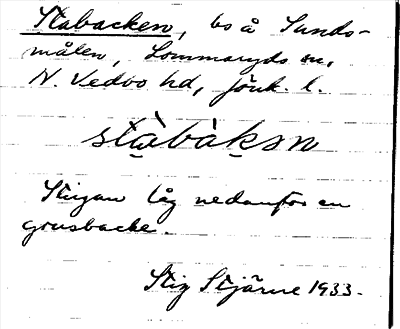 Stabacken, bs å Sunds-
målen, Lommaryds sn,
N. Vedbo hd, Jönk. l.
stàbàkən
Stugan låg nedanför en
grusbacke.
Stig Stjärne 1933.